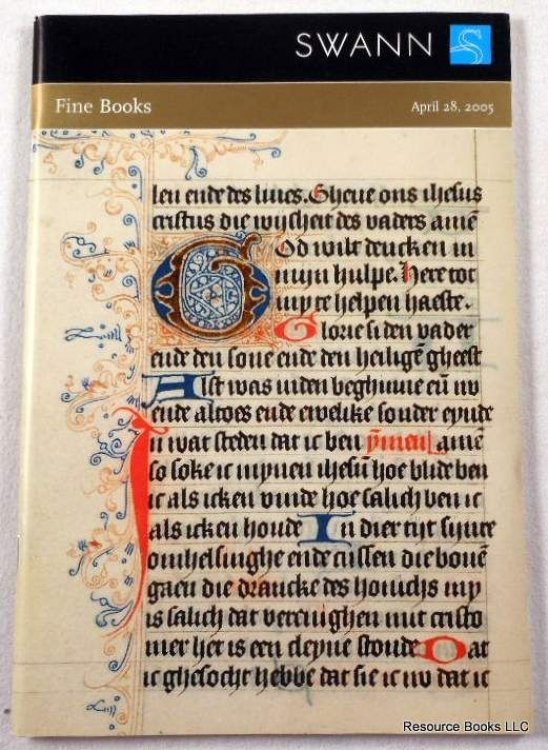 SWANN
Fine Books
April 28, 2005
leu ende des liues. Gheue ons ihesus
cristus die wijsheit des vaders amē
God wilt dencken in
mijn hulpe. Here tot
my te helpen haeste.
Glorie si den vader
ende den sone ende den heiligē gheest
Alst was inden beghinne eñ nv
ende altoes ende ewelike sonder eynde
In wat steden dat ic ben amē
so soke ic mynen ihesū hoe blide ben
ic als icken vinde hoe salich ben ic
als icken houde In dier tyt synre
omhelsinghe ende cussen die bouē
gaen die drancke des honichs my
is salich dat verenighen mit cristo
mer het is een cleyne stonde Dat
ic ghesocht hebbe dat sie ic nv dat ic
Resource Books LLC